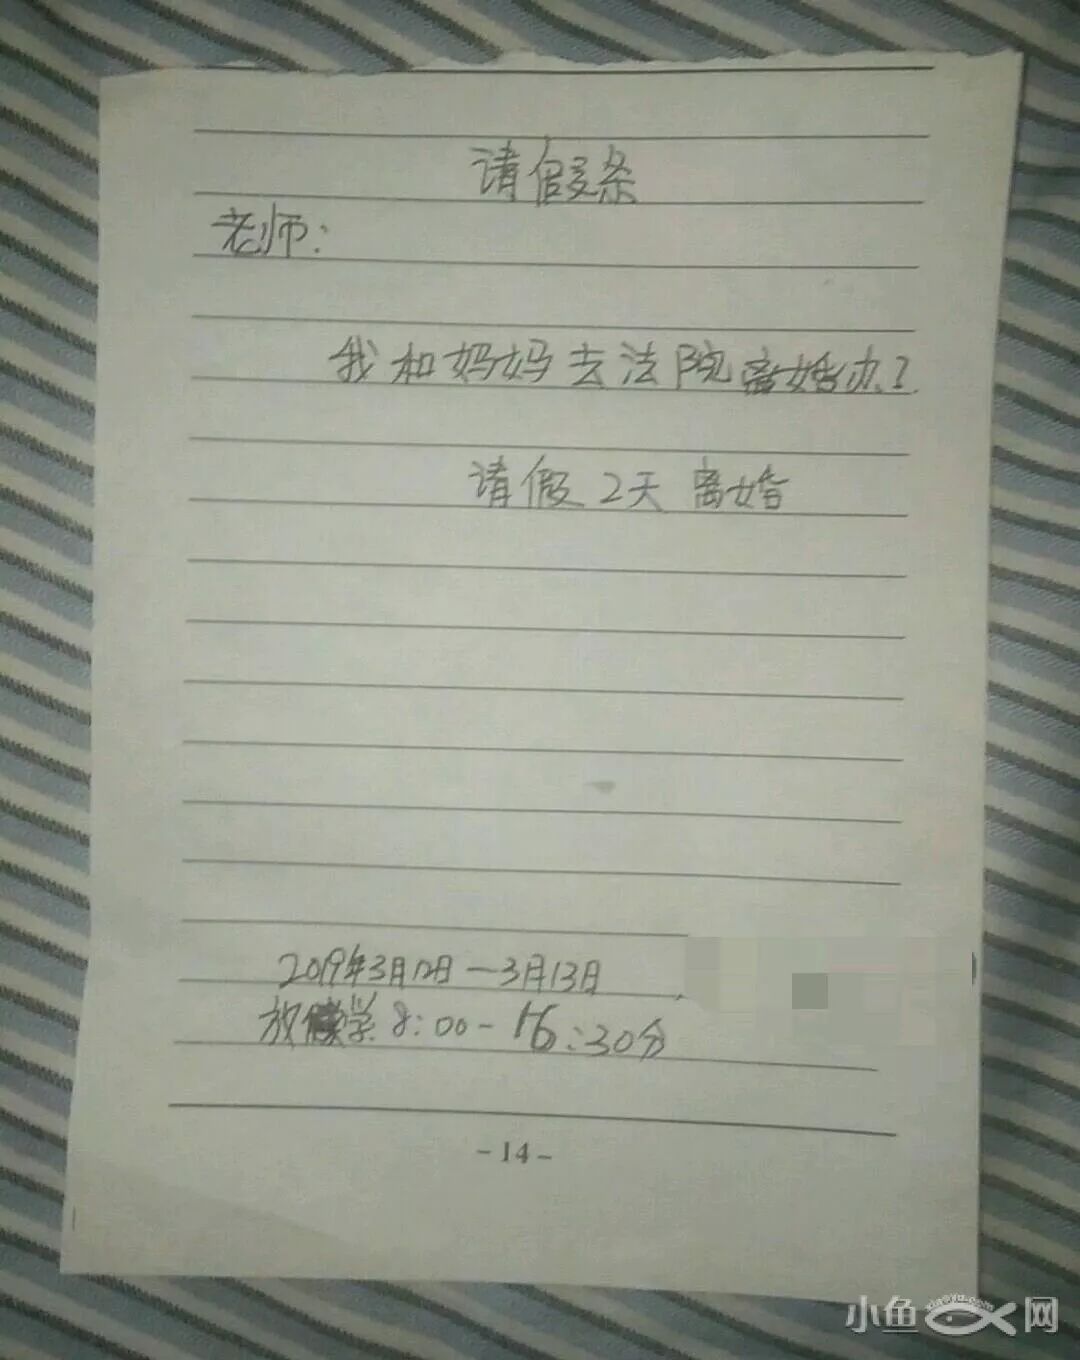 请假条
老师:
我和妈妈去法院离婚办了.
请假2天离婚
2019年3月12日—3月13日
放学8:00-16:30分
-14-
小鱼网
xiaoyu.com